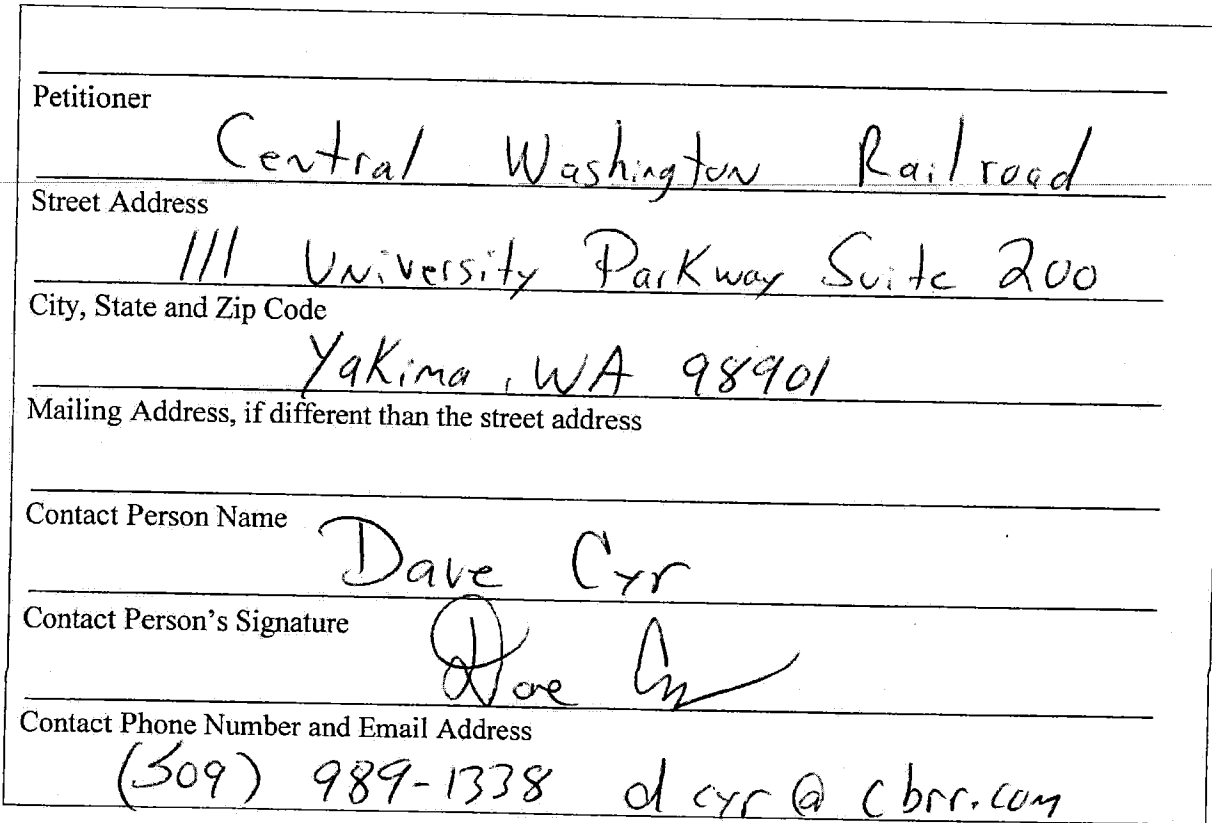 Petitioner
Central Washington Railroad
Street Address
111 University Parkway Suite 200
City, State and Zip Code
Yakima, WA 98901
Mailing Address, if different than the street address
Contact Person Name
Dave Cyr
Contact Person's Signature
Contact Phone Number and Email Address
(509) 989-1338 dcyr@cbrr.com